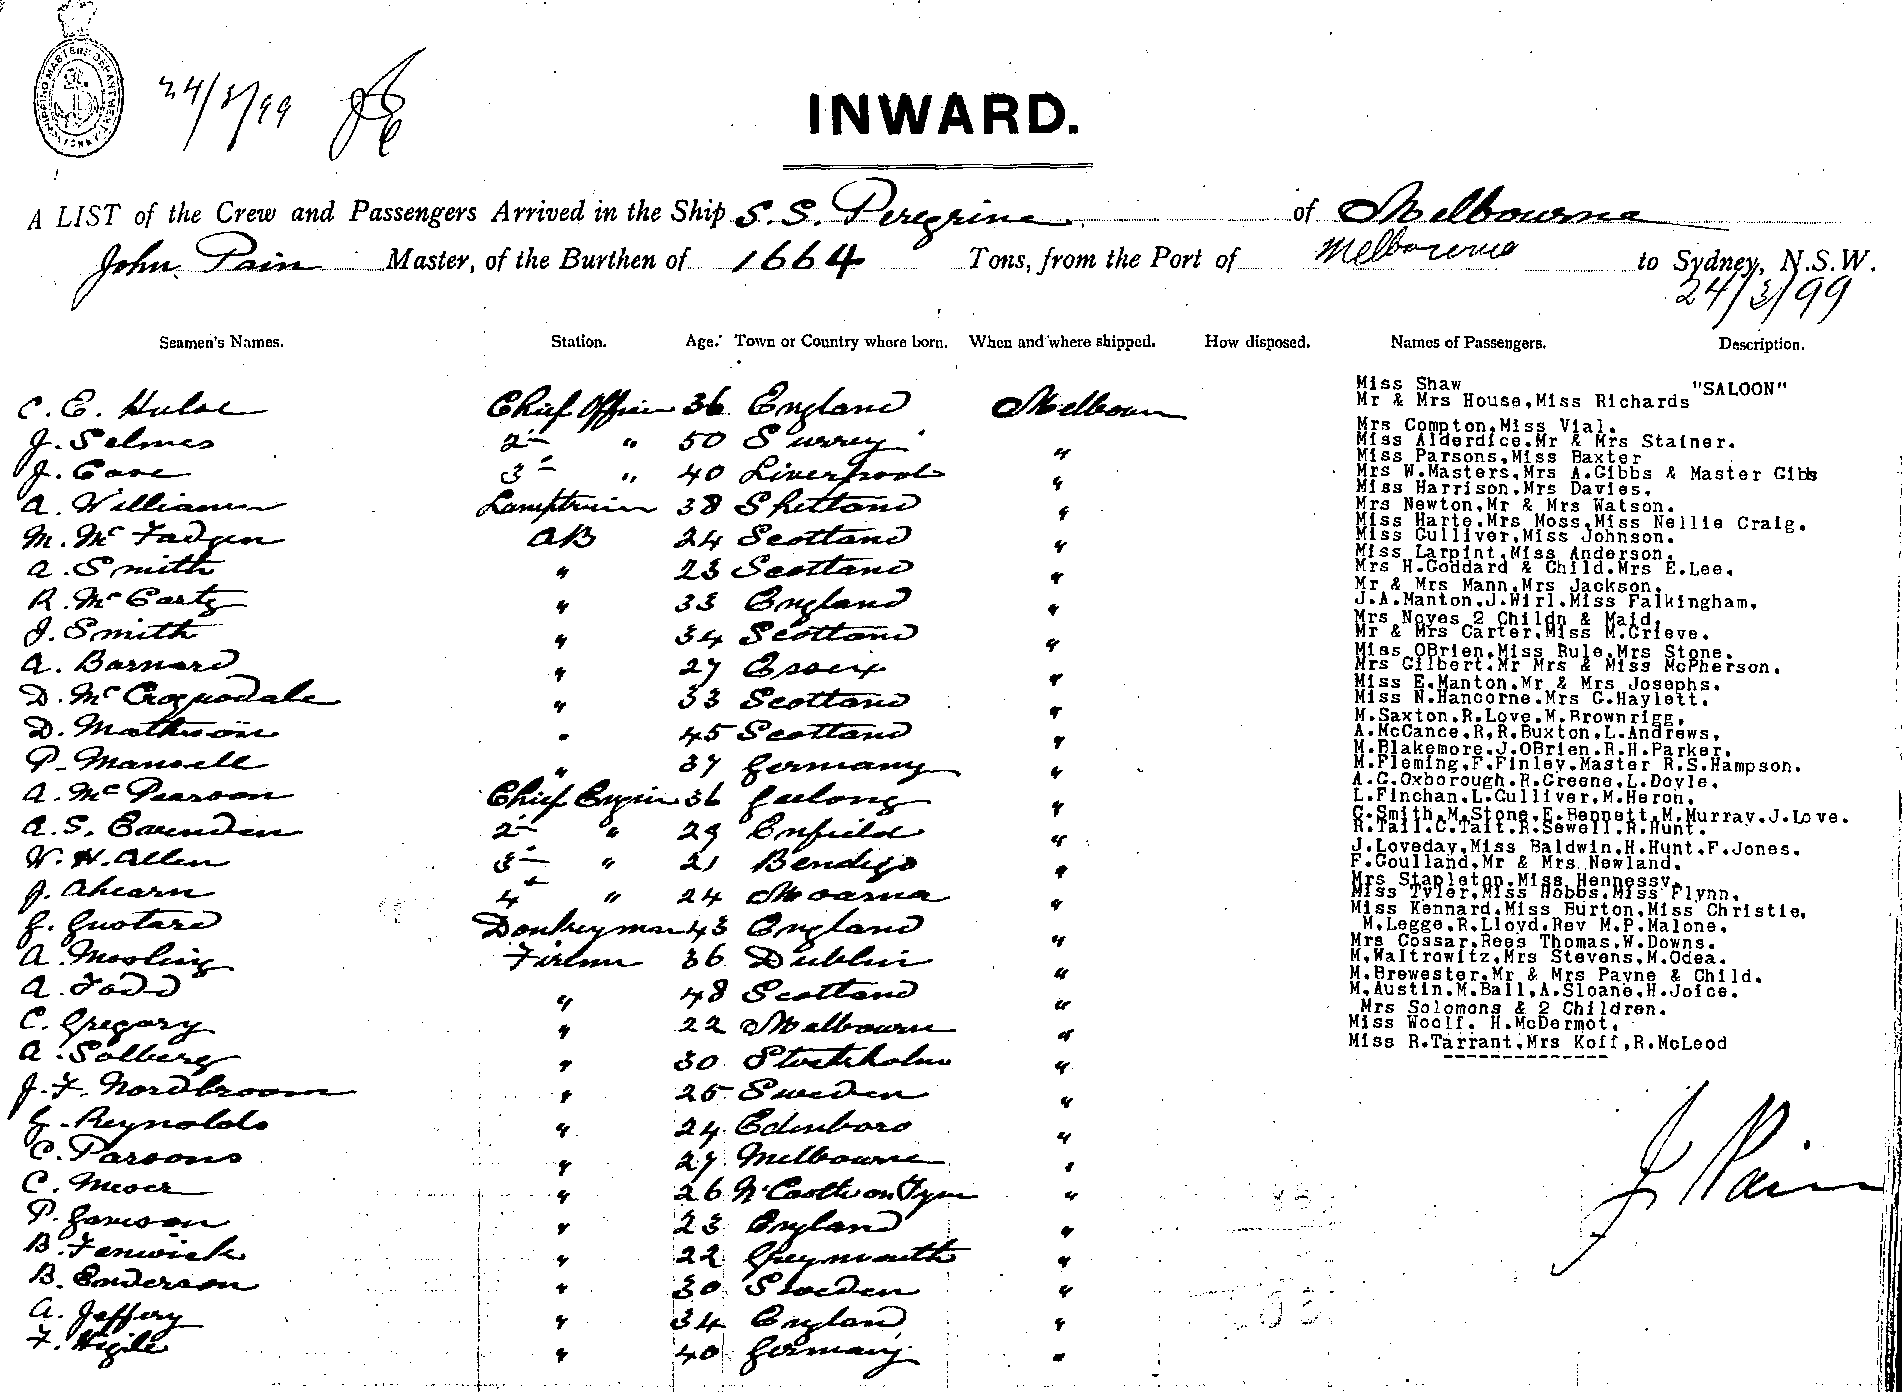 SHIPPING MASTER'S DEPARTMENT
24/3/99
INWARD.
A LIST of the Crew and Passengers Arrived in the Ship S.S. Peregrine of Melbourne
John Pain Master, of the Burthen of 1664 Tons, from the Port of Melbourne to Sydney, N.S.W.
24/3/99
Seamen's Names. Station. Age. Town or Country where born. When and where shipped. How disposed. Names of Passengers. Description.
C. E. Hulse Chief Officer 36 England Melbourn
J. Selmes 2 " 50 Surrey "
J. Cave 3 " 40 Liverpool "
A. Williamson Lamptrimr 38 Shetland "
M. McFadgen AB 24 Scotland "
A. Smith " 23 Scotland "
R. McCarty " 33 England "
J. Smith " 34 Scotland "
A. Barnard " 27 Essex "
D. McCorquodale " 33 Scotland "
D. Matheson " 45 Scotland "
P. Mansell " 37 Germany "
A. McPearson Chief Engin 36 Geelong "
A. S. Cavenden 2 " 29 Enfield "
W. H. Allen 3 " 21 Bendigo "
J. Ahearn 4 " 24 Moama "
G. Gustard Donkeyman 43 England "
A. Mosling Firemn 36 Dublin "
A. Todd " 48 Scotland "
C. Gregory " 22 Melbourn "
A. Solberg " 30 Stockholm "
J. F. Nordbroom " 25 Sweden "
G. Reynolds " 24 Edenboro "
C. Parsons " 27 Melbourne "
C. " 26 N'Castle on Tyne "
P. " 23 England "
B. Fenwick " 22 Greymouth "
B. Enderson " 30 Sweden "
A. Jeffery " 34 England "
F. " 40 Germany "
Miss Shaw "SALOON"
Mr & Mrs House,Miss Richards
Mrs Compton.Miss Vial.
Miss Alderdice.Mr & Mrs Stainer.
Miss Parsons,Miss Baxter
Mrs W.Masters,Mrs A.Gibbs & Master Gibbs
Miss Harrison.Mrs Davies.
Mrs Newton.Mr & Mrs Watson.
Miss Harte.Mrs Moss,Miss Nellie Craig.
Miss Gulliver,Miss Johnson.
Miss Larpint,Miss Anderson.
Mrs H.Goddard & Child.Mrs E.Lee.
Mr & Mrs Mann,Mrs Jackson.
J.A.Manton.J.Wirl.Miss Falkingham.
Mrs Noyes 2 Childn & Maid.
Mr & Mrs Carter.Miss M.Grieve.
Miss OBrien.Miss Rule.Mrs Stone.
Mrs Gilbert.Mr Mrs & Miss McPherson.
Miss E.Manton.Mr & Mrs Josephs.
Miss N.Hancorne.Mrs G.Haylett.
M.Saxton.R.Love.M.Brownrigg.
A.McCance.R.R.Buxton.L.Andrews.
M.Blakemore.J.OBrien.R.H.Parker.
M.Fleming.F.Finley.Master R.S.Hampson.
A.G.Oxborough.R.Greene.L.Doyle.
L.Finchan.L.Gulliver.M.Heron.
G.Smith.M.Stone.E.Bennett.M.Murray.J.Love.
R.Tall.C.Tait.R.Sewell.R.Hunt.
J.Loveday.Miss Baldwin.H.Hunt.F.Jones.
F.Goulland.Mr & Mrs Newland.
Mrs Stapleton.Miss Hennessy.
Miss Tyler.Miss Hobbs.Miss Flynn.
Miss Kennard.Miss Burton.Miss Christie.
M.Legge.R.Lloyd.Rev M.P.Malone.
Mrs Cossar.Rees Thomas.W.Downs.
M.Waltrowitz.Mrs Stevens.M.Odea.
M.Brewester.Mr & Mrs Payne & Child.
M.Austin.M.Ball,A.Sloane.H.Joice.
Mrs Solomons & 2 Children.
Miss Woolf. H.McDermot.
Miss R.Tarrant,Mrs Koff,R.McLeod
J Pain